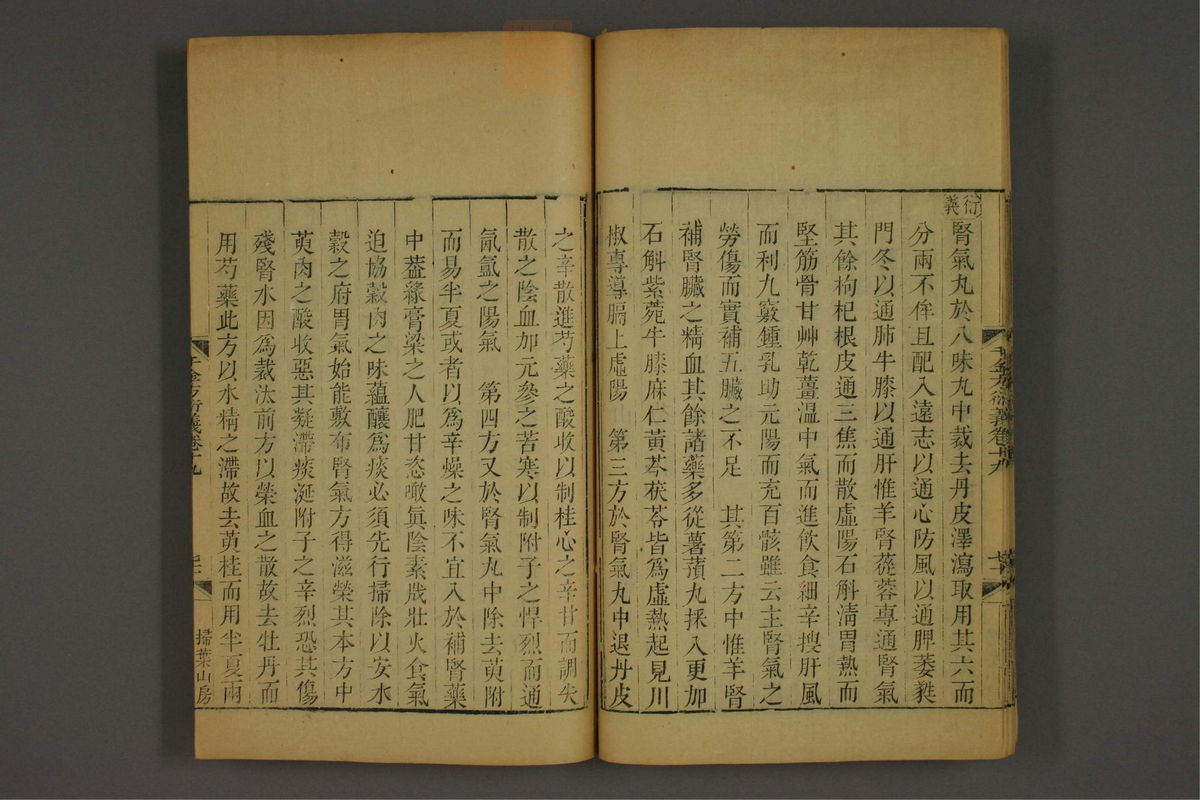 衍義
腎氣丸於八味丸中裁去丹皮澤瀉取用其六而
分兩不侔且配入遠志以通心防風以通脾萎蕤
門冬以通肺牛膝以通肝惟羊腎蓯蓉專通腎氣
其餘枸杞根皮通三焦而散虛陽石斛淸胃熱而
堅筋骨甘艸乾薑溫中氣而進飮食細辛搜肝風
而利九竅鍾乳助元陽而充百骸雖云主腎氣之
勞傷而實補五臟之不足　其第二方中惟羊腎
補腎臟之精血其餘諸藥多從薯蕷丸採入更加
石斛紫菀牛膝麻仁黃芩茯苓皆爲虛熱起見川
椒專導膈上虛陽　第三方於腎氣丸中退丹皮
千金方衍義卷十九
之辛散進芍藥之酸收以制桂心之辛甘而調失
散之陰血加元參之苦寒以制附子之悍烈而通
氤氳之陽氣　第四方又於腎氣丸中除去萸附
而易半夏或者以爲辛燥之味不宜入於補腎藥
中葢緣膏粱之人肥甘恣噉眞陰素戕壯火食氣
迫協穀肉之味蘊釀爲痰必須先行掃除以安水
穀之府胃氣始能敷布腎氣方得滋榮其本方中
萸肉之酸收惡其凝滯痰涎附子之辛烈恐其傷
殘腎水因爲裁汰前方以榮血之散故去牡丹而
用芍藥此方以水精之滯故去黃桂而用半夏兩
千金方衍義卷十九
掃葉山房